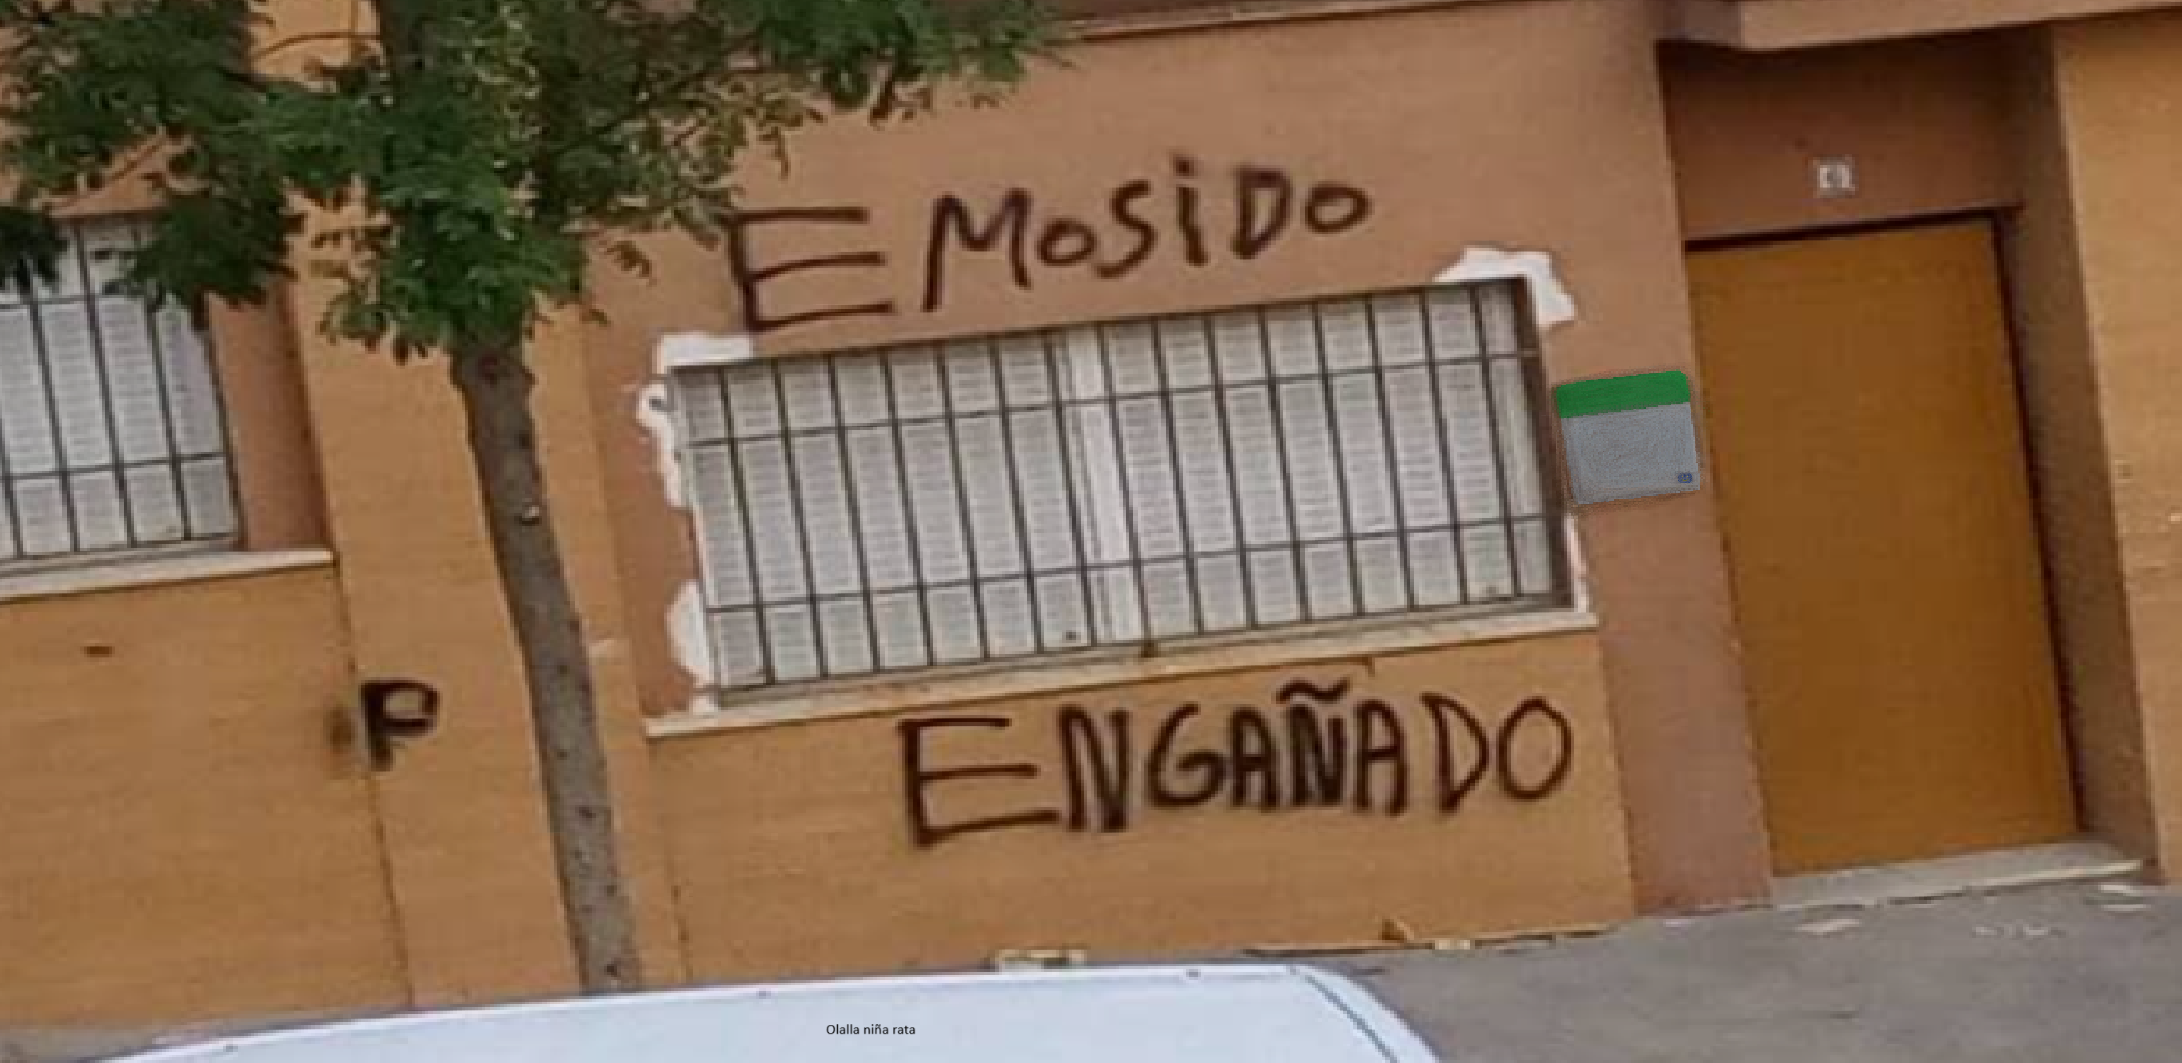 EMOSiDO
P
ENGAÑADO
Olalla niña rata